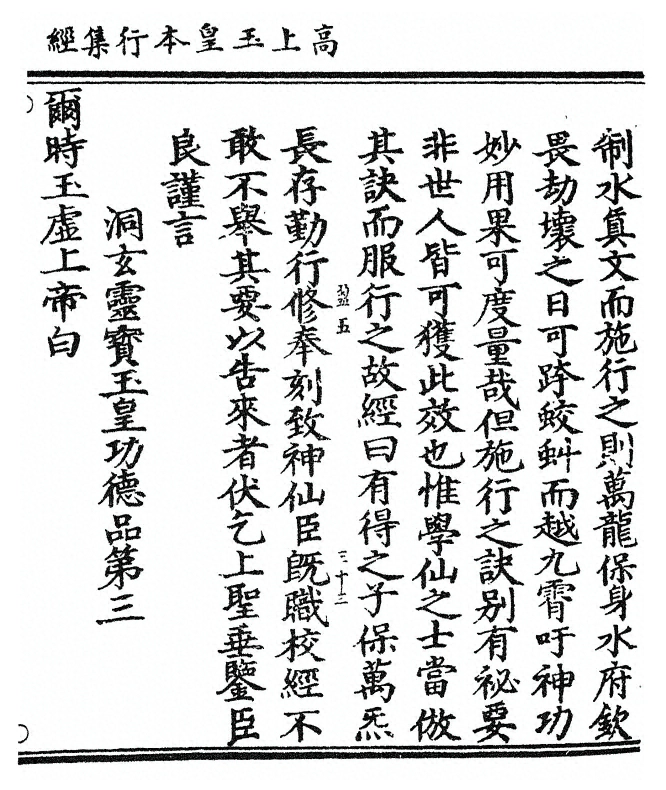 高上玉皇本行集經
制水真文而施行之則萬龍保身水府欽
畏劫壞之日可跨蛟虯而越九霄吁神功
妙用果可度量哉但施行之訣别有祕要
非世人皆可獲此效也惟學仙之士當倣
其訣而服行之故經曰有得之子保萬炁
盈五
三十三
長存勤行修奉刻致神仙臣旣職校經不
敢不舉其要以告來者伏乞上聖垂鑒臣
良謹言
洞玄靈寶玉皇功德品第三
爾時玉虛上帝白